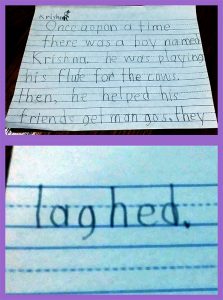 Krishna
Once aepon a time
there was a boy named
Krishna. he was playing
his flute for the cows.
then, he helped his
friends get man gos, they
laghed.